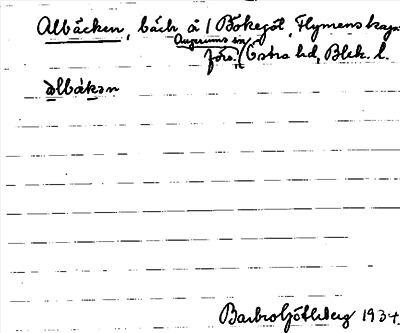 Albäcken, bäck å 1 Bökegöl, Flymens kapell
Augerums sn
förs. Östra hd, Blek. l.
àlbákən
Barbro Götheberg 1934.